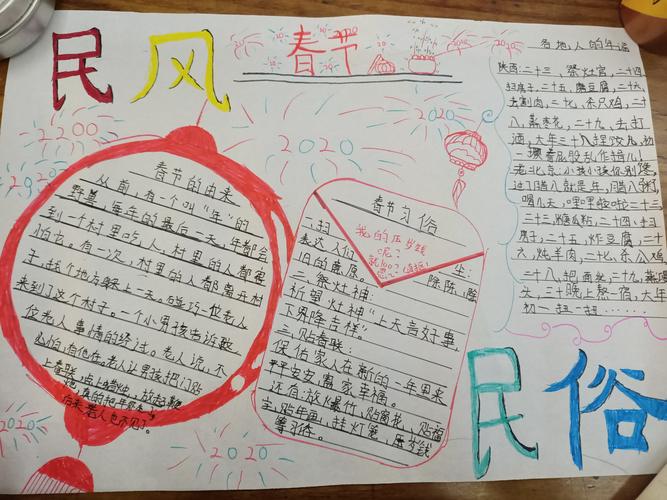 民风
春节
2020
2020
2020
2020
2020
2020
春节的由来
从前,有一个叫“年”的
野兽,每年的最后一天,年都会
到一个村里吃人,村里的人都
怕它。有一次,村里的人都离开村
子,找个地方躲上一天。
来到了这个村子。一个小男孩告诉
位老人事情的经过。老人说,不
必怕有他在。老人让男孩把门贴
上春联,点上蜡烛,放起鞭
炮,真的把年
后来老人也不见了。
春节习俗
我的压岁钱
呢?
一、扫尘:
表达人们除陈,除
旧的意愿
二、祭灶神:
祈望灶神“上天言好事,
下界降吉祥。”
三、贴春联:
保佑家人在新的一年里来
平平安安,阖家幸福。
还有:放火爆竹,贴窗花,贴福
字,贴年画,挂灯笼,压岁钱
等习俗。
各地人的年谣
陕西:二十三,祭灶官,二十四
扫房子,二十五,磨豆腐,二十六,
去割肉,二十七,杀只鸡,二十
八,蒸枣花,二十九,去打
酒,大年三十捏饺儿,初
一撅着屁股乱作揖儿!
老北京:小孩小孩你别馋,
过了腊八就是年,腊八粥
喝几天,哩哩啦啦二十三
二十三,糖瓜粘,二十四,扫
房子,二十五,炸豆腐,二十
六,炖羊肉,二十七,杀公鸡
二十八,把面发,二十九,蒸馒
头,三十晚上熬一宿,大年
初一扭一扭……
民俗